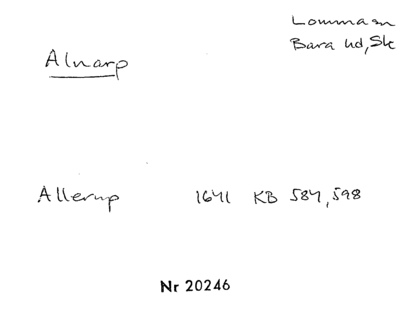 Lomma sn
Bara hd, Sk
Alnarp
Allerup 1641 KB 584, 598
Nr 20246